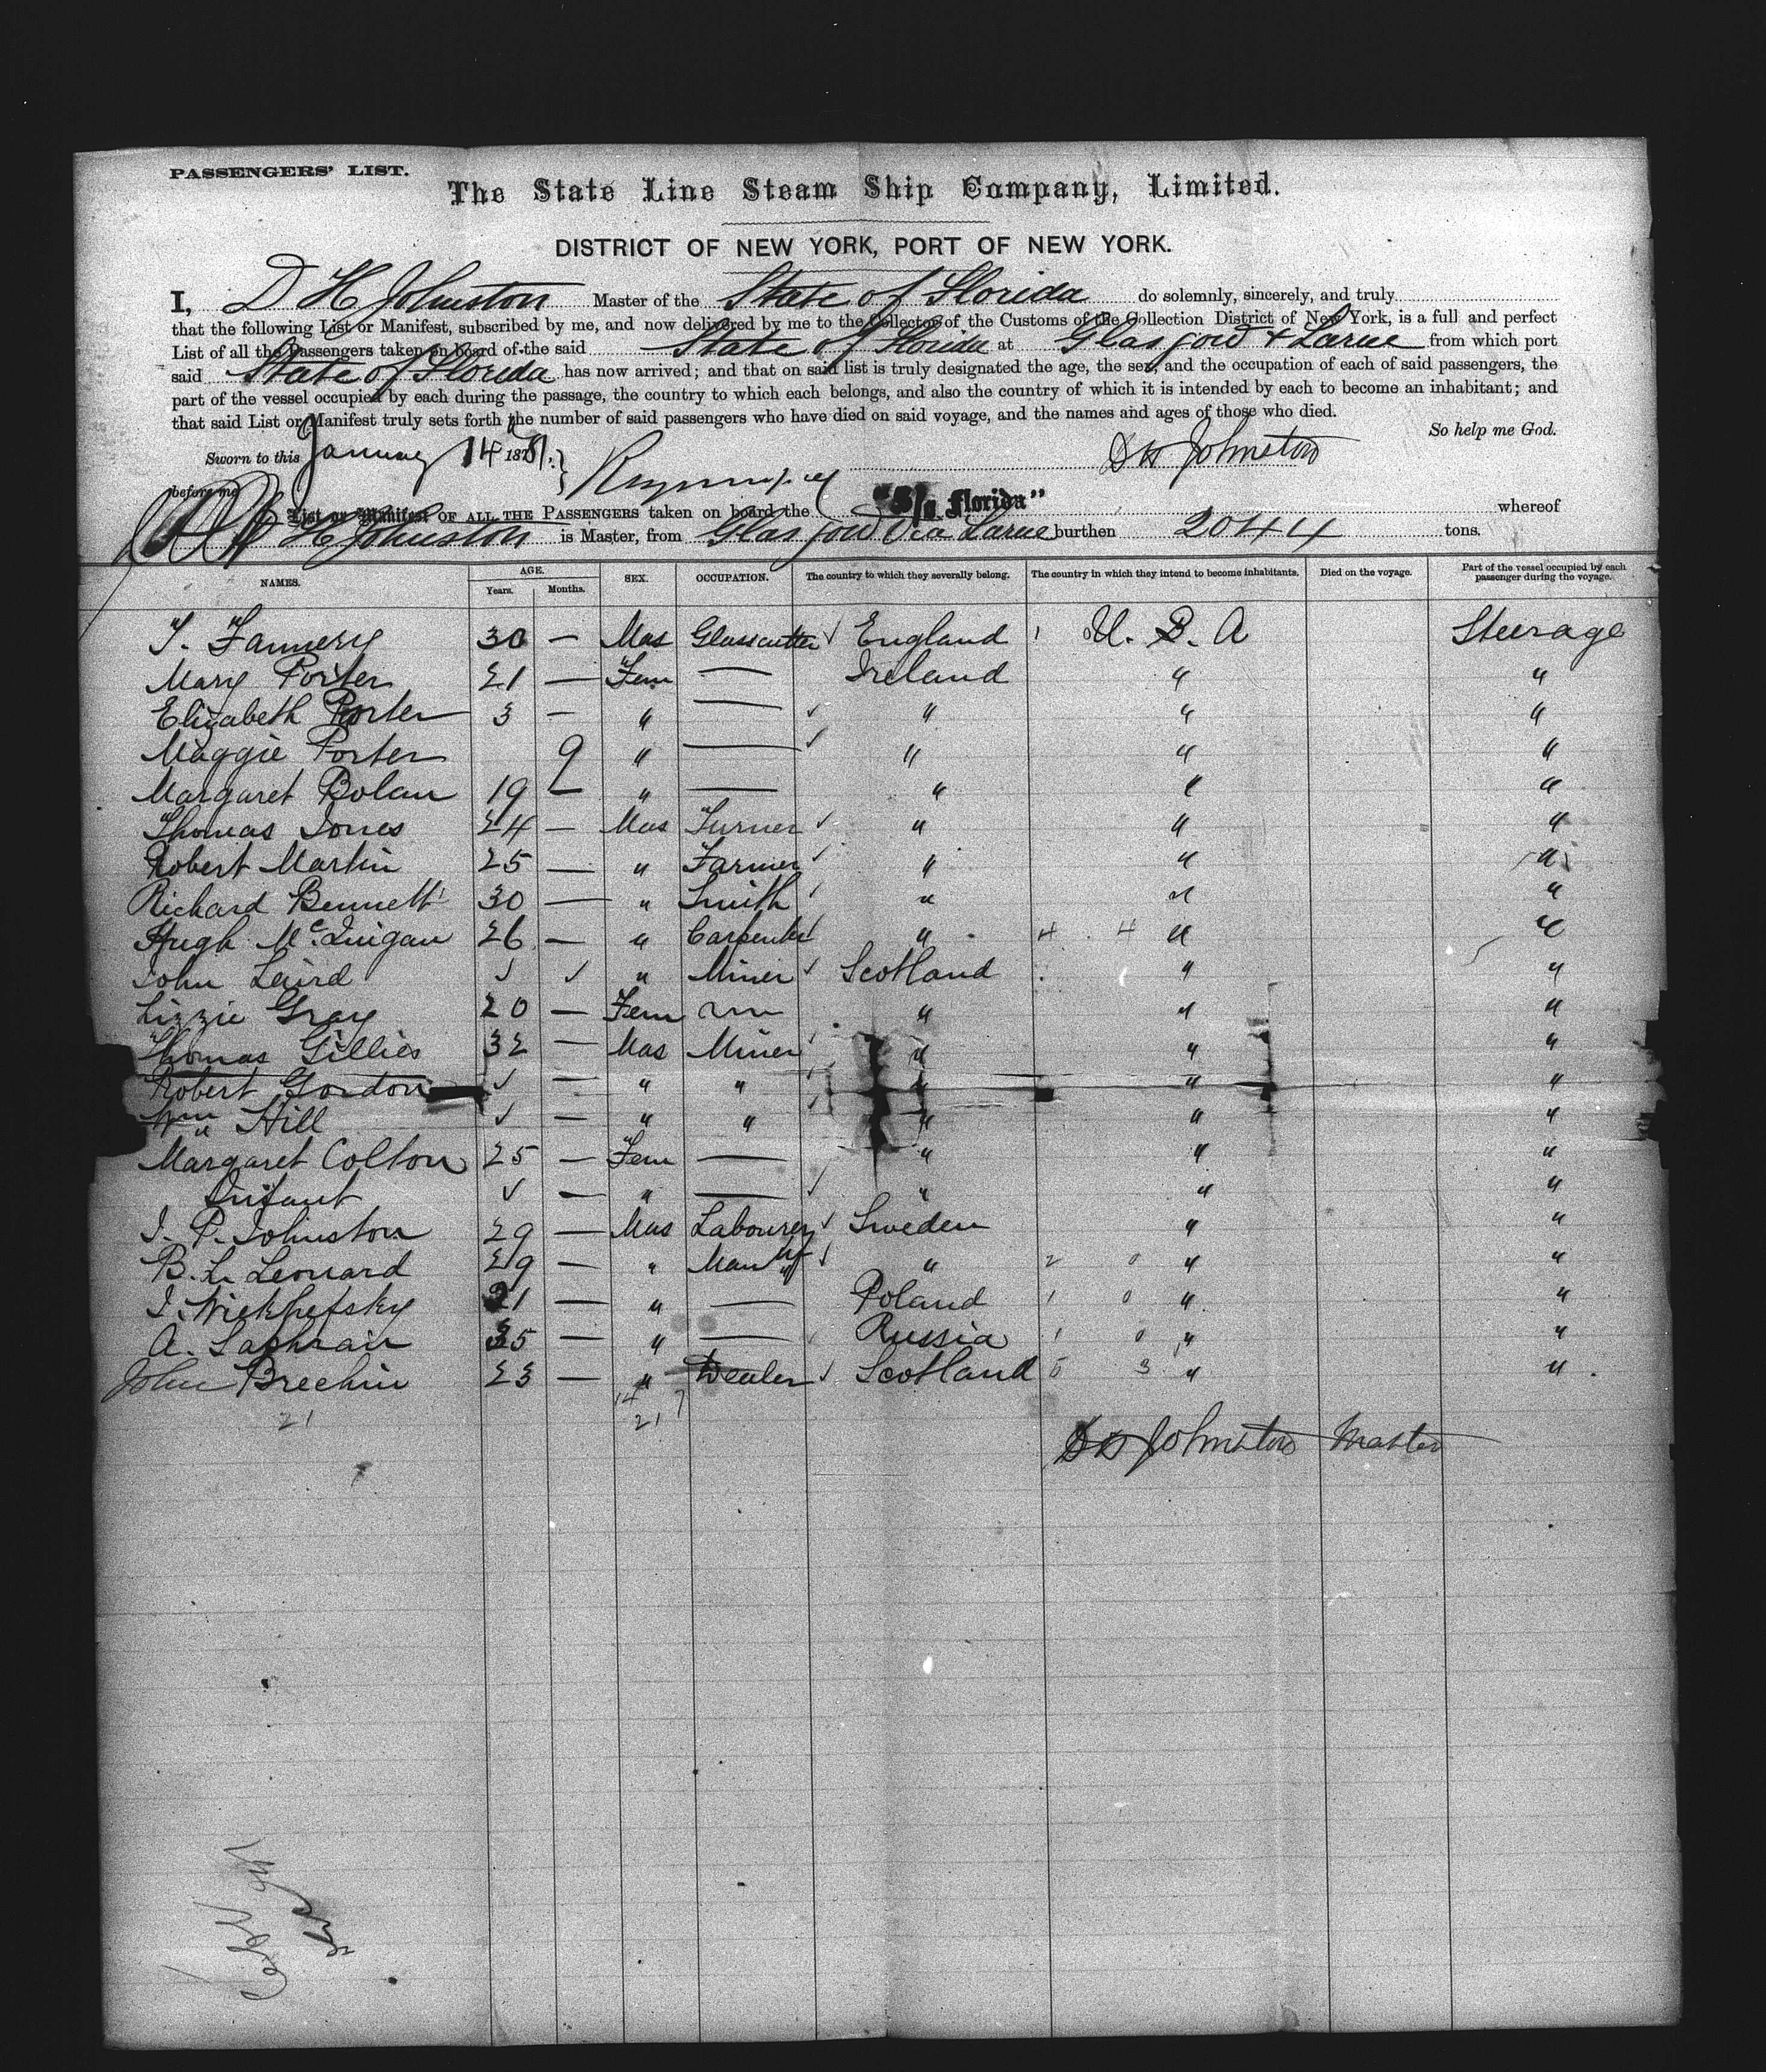 PASSENGERS' LIST.
The State Line Steam Ship Company, Limited.
DISTRICT OF NEW YORK, PORT OF NEW YORK.
I, D H Johnston Master of the State of Florida do solemnly, sincerely, and truly
that the following List or Manifest, subscribed by me, and now delivered by me to the Collector of the Customs of the Collection District of New York, is a full and perfect
List of all the Passengers taken on board of the said State of Florida at Glasgow & Larne from which port
said State of Florida has now arrived; and that on said list is truly designated the age, the sex, and the occupation of each of said passengers, the
part of the vessel occupied by each during the passage, the country to which each belongs, and also the country of which it is intended by each to become an inhabitant; and
that said List or Manifest truly sets forth the number of said passengers who have died on said voyage, and the names and ages of those who died.
So help me God.
Sworn to this January 14 1881. DH Johnston
before me
List or Manifest OF ALL THE PASSENGERS taken on board the "S/s Florida" whereof
D H Johnston is Master, from Glasgow Via Larne burthen 2044 tons.
NAMES. AGE. Years. Months. SEX. OCCUPATION. The country to which they severally belong. The country in which they intend to become inhabitants. Died on the voyage. Part of the vessel occupied by each passenger during the voyage.
T. Fannery 30 — Mas Glasscutter ✓ England 1 0 U. S. A Steerage
Mary Porter 21 — Fem — Ireland " "
Elizabeth Porter 3 — " — ✓ " " "
Maggie Porter 9 " — ✓ " " "
Margaret Bolan 19 — " — " " "
Thomas Jones 24 — Mas Turner ✓ " " "
Robert Martin 25 — " Farmer ✓ " " "
Richard Bennett 30 — " Smith ✓ " " "
Hugh McQuigan 26 — " Carpenter ✓ " 4 4 " "
John Laird ✓ ✓ " Miner ✓ Scotland " "
Lizzie Gray 20 — Fem — " " "
Thomas Gillies 32 — Mas Miner ✓ " " "
Robert Gordon ✓ — " " ✓ " " "
Wm Hill ✓ — " " ✓ " " "
Margaret Colton 25 — Fem — " " "
" Infant ✓ — " — ✓ " " "
J. P. Johnston 29 — Mas Labourer ✓ Sweden " "
B. L. Leonard 29 — " ✓ " 2 0 " "
21 — " — Poland 1 0 " "
A. 35 — " — Russia 1 0 " "
John Brechin 23 — " Dealer ✓ Scotland 5 3 " "
21 14 7
21
DH Johnston Master